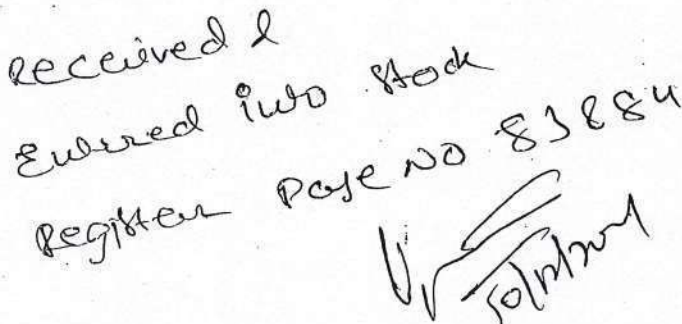 Received &
Entered into Stock
Register Page No 83&84